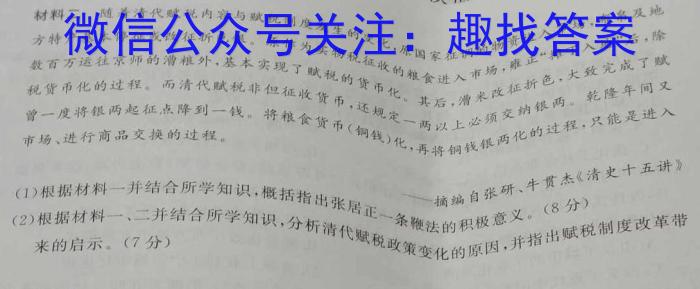 材料二 随着清代赋税内容与赋税制度
微信公众号关注：趣找答案
数百万运往京师的漕粮外，基本实现了赋税的货币化。其后，漕米改征折色，大致完成了赋
税货币化的过程。而清代赋税非但征收货币，还规定一两以上必须交纳银两。乾隆年间又
曾一度将银两起征点降到一钱。将粮食货币(铜钱)化，再将铜钱银两化的过程，只能是进入
市场、进行商品交换的过程。
——摘编自张研、牛贯杰《清史十五讲》
(1)根据材料一并结合所学知识，概括指出张居正一条鞭法的积极意义。(8分)
(2)根据材料一、二并结合所学知识，分析清代赋税政策变化的原因，并指出赋税制度改革带
来的启示。(7分)